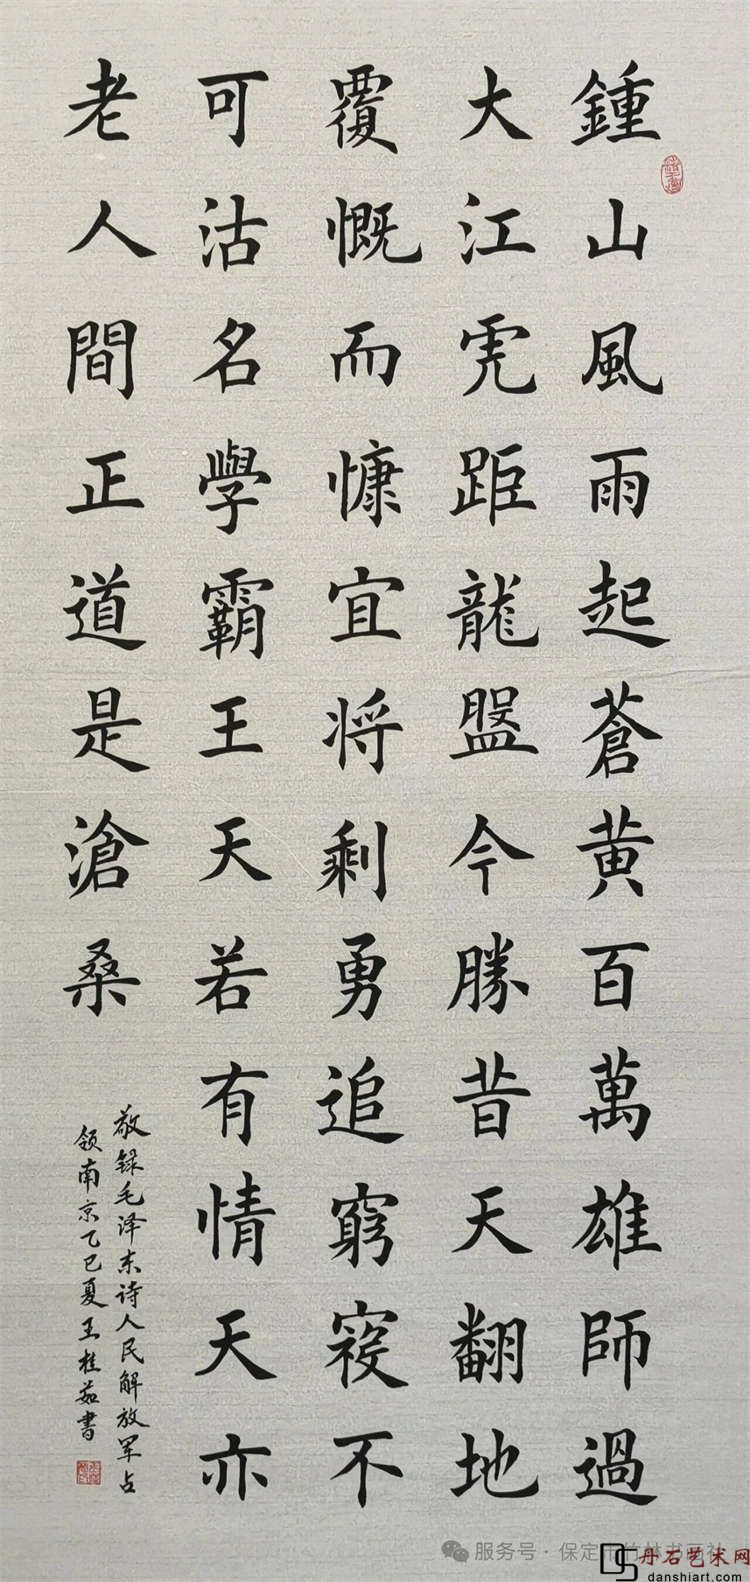 鍾山風雨起蒼黄百萬雄師過
大江虎距龍盤今勝昔天翻地
覆慨而慷宜将剩勇追窮寇不
可沽名學霸王天若有情天亦
老人間正道是滄桑
敬録毛泽东诗人民解放军占
领南京乙巳夏王桂茹書
服务号·保定市竹林书画社
丹石艺术网
danshiart.com